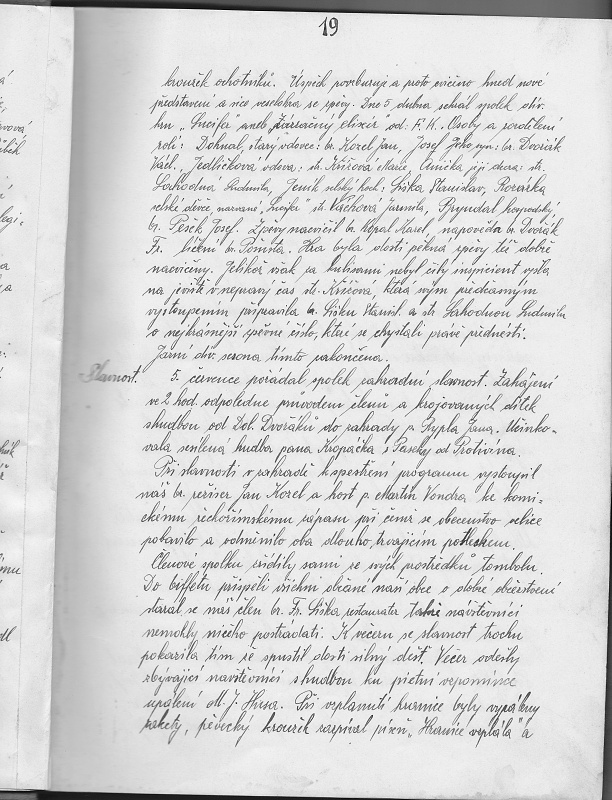 19
kroužek ochotníků. Úspěch povzbuzuje a proto cvičeno hned nové
představení a sice veselohra se zpěvy. Dne 5 dubna sehrál spolek div.
hru „Lucifer" aneb „Zázračný elixír" od: F. K. Osoby a rozdělení
rolí: Dohnal, starý vdovec: br. Kozel Jan, Josef jeho syn: br. Dvořák
Václ., Jedličková vdova: str. Křížová Marie Anička její dcera: str.
Ludmila, Jeník selský hoch: Liška Stanislav, Rozárka
selské děvče nazvané „ str. Váchová Jarmila, Bryndal hospodský
br. Pešík Josef. Zpěvy nacvičil br. Kopal Karel, napovídá br. Dvořák
Fr. líčení br. Hra byla dosti pěkná zpěvy též dobře
nacvičeny. Jelikož však za kulisami nebyl čilý inspicient vyšla
na jeviště v nepravý čas str. Křížová, která svým předčasným
vystoupením připravila br. Lišku Stanisl. a str. Ludmilu
o nejkrásnější zpěvné číslo, které se chystali právě přednésti.
Jarní div. sezona tímto zakončena.
Slavnost.
5. července pořádal spolek zahradní slavnost. Zahájení
ve 2 hod. odpoledne průvodem členů a krojovaných dítek
s hudbou od Dol. Dvořáků do zahrady p. Cypla Jana. Účinko-
vala sesílená hudba pana Kropáčka s Paseky od Protivína.
Při slavnosti v zahradě k zpestření programu vystoupil
náš br. režiser Jan Kozel a host p. Martin Vondra ke komi-
ckému řeckořímskému zápasu při čemž se obecenstvo velice
pobavilo a odměnilo oba dlouho trvajícím potleskem.
Členové spolku zřídili sami ze svých prostředků tombolu.
Do buffetu přispěli všichni občané naší obce o dobré občerstvení
staral se náš člen br. Fr. Liška restaurater takže návštěvníci
nemohly ničeho postrádati. K večeru se slavnost trochu
pokazila tím že spustil dosti silný déšť. Večer odešly
zbývající navštěvníci s hudbou ku pietní vzpomínce
upálení M. J. Husa. Při vzplanutí hranice byly vypáleny
rakety, pěvecký kroužek zazpíval píseň „Hranice vzplála" a